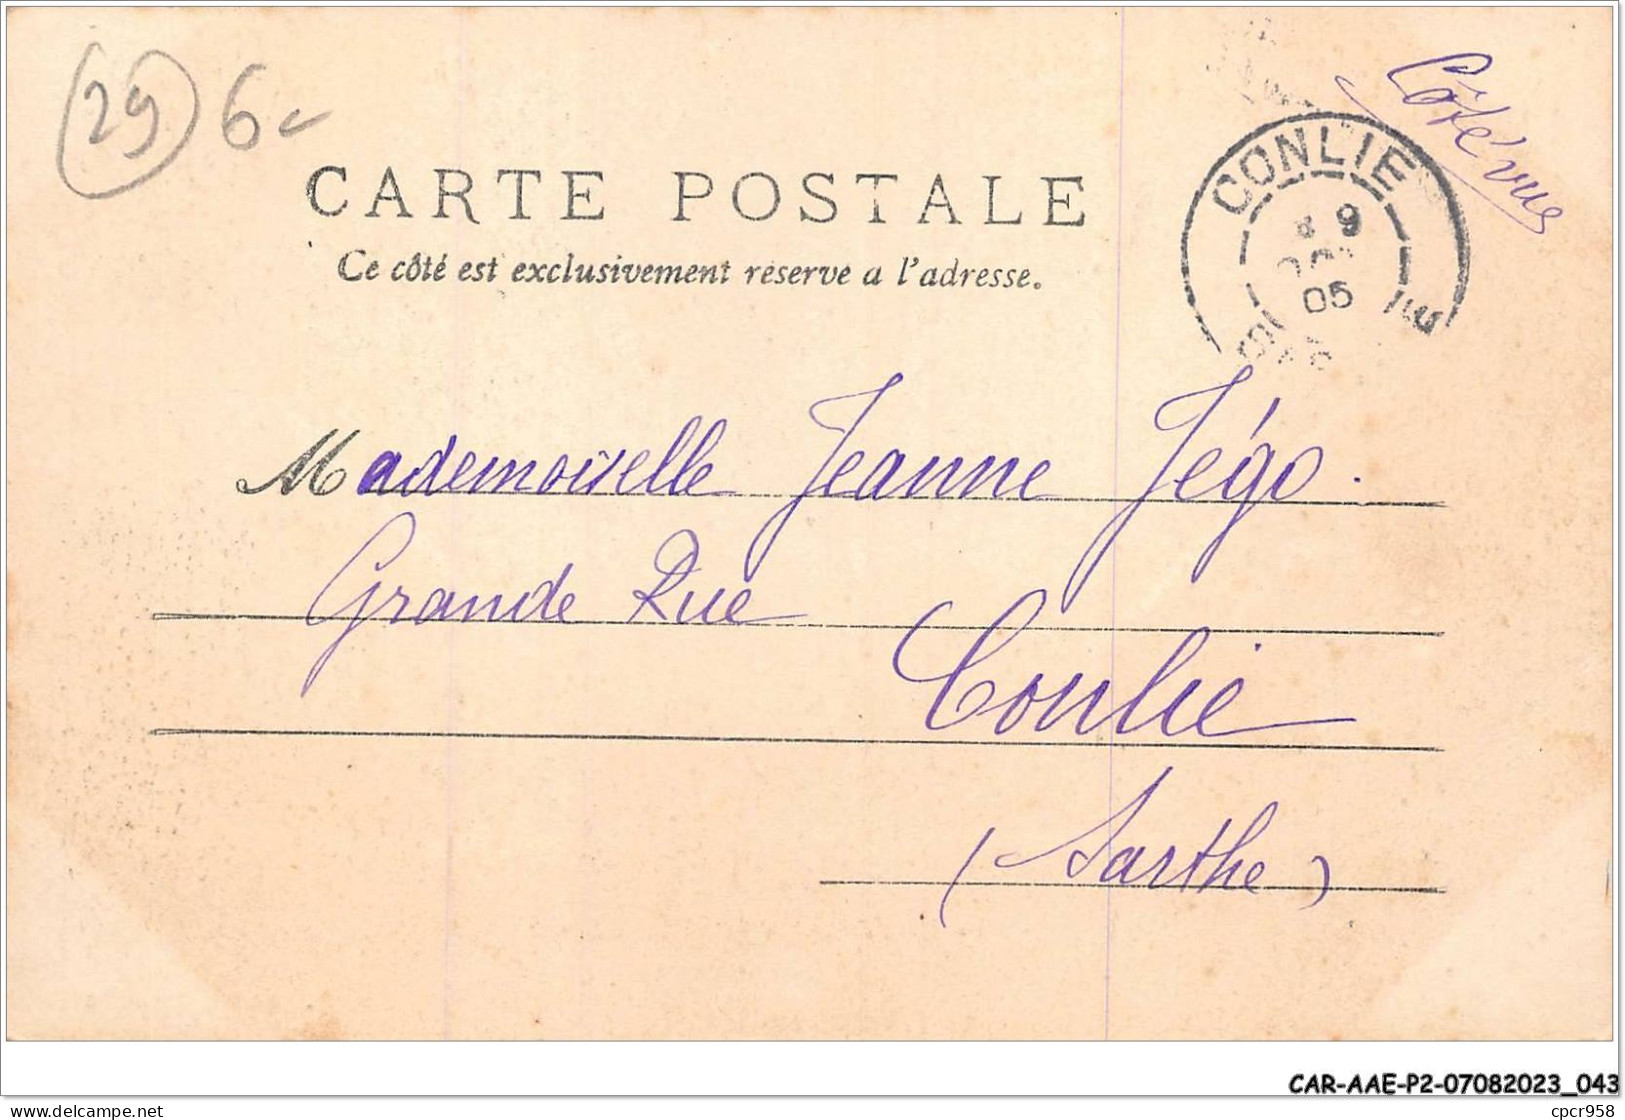 29 6
Côté vue
CONLIE
9
05
CARTE POSTALE
Ce côté est exclusivement réservé a l'adresse.
Mademoiselle Jeanne Jégo.
Grande Rue
Conlie
(Sarthe)
CAR-AAE-P2-07082023_043
cpcr958